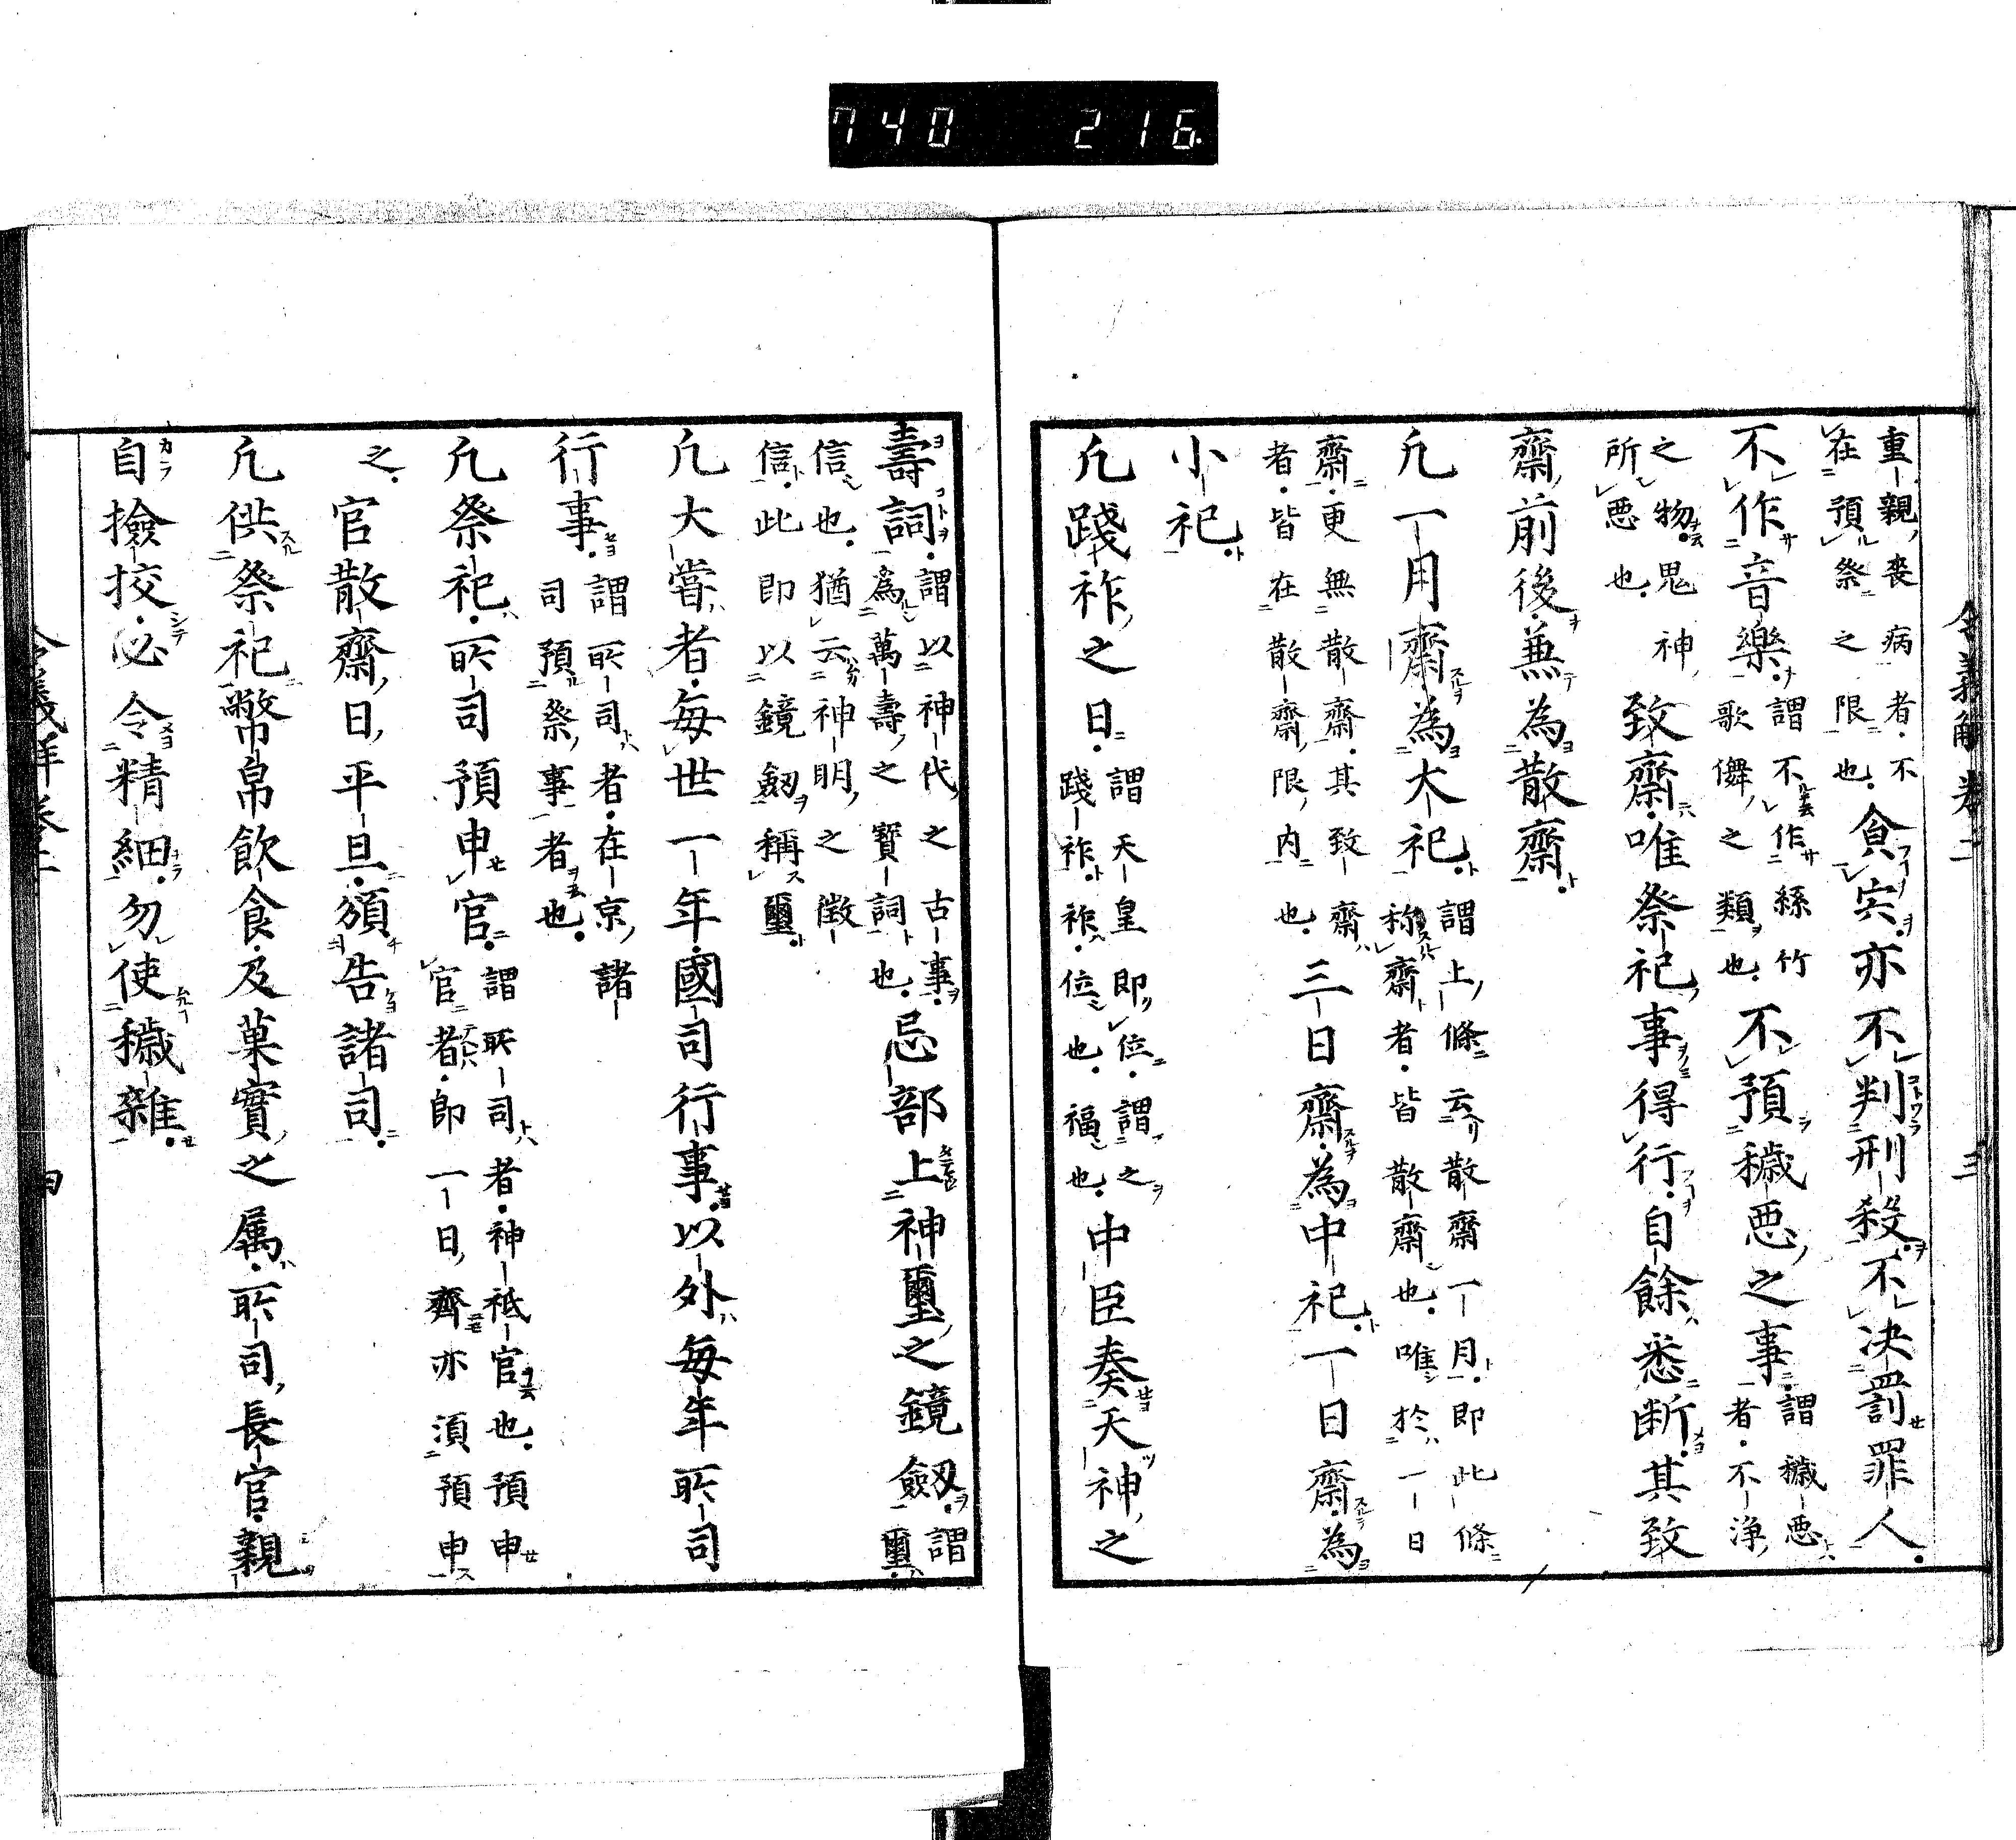 740 216
重親喪病者不
在預祭之限也食宍亦不判刑殺不決罰罪人
不作音樂謂不作絲竹
歌儛之類也不預穢惡之事謂穢惡
者不浄
之物鬼神
所惡也致齋唯祭祀事得行自餘悉断其致
齋前後兼為散齋
凡一月齋為大祀謂上條云散齋一月即此條
称齋者皆散齋也唯於一日
齋更無散齋其致齋
者皆在散齋限内也三日齋為中祀一日齋為
小祀
凡踐祚之日謂天皇即位謂之
踐祚祚位也福也中臣奏天神之
令義解卷二 三
壽詞謂以神代之古事
為萬壽之寶詞也忌部上神璽之鏡劔謂
璽
信也猶云神明之徴
信此即以鏡劔稱璽
凡大嘗者每世一年國司行事以外每年所司
行事謂所司者在京諸
司預祭事者也
凡祭祀所司預申官謂所司者神祇官也預申
官者即一日齋亦須預申
之官散齋日平旦頒告諸司
凡供祭祀幣帛飲食及菓實之属所司長官親
自撿挍必令精細勿使穢雜